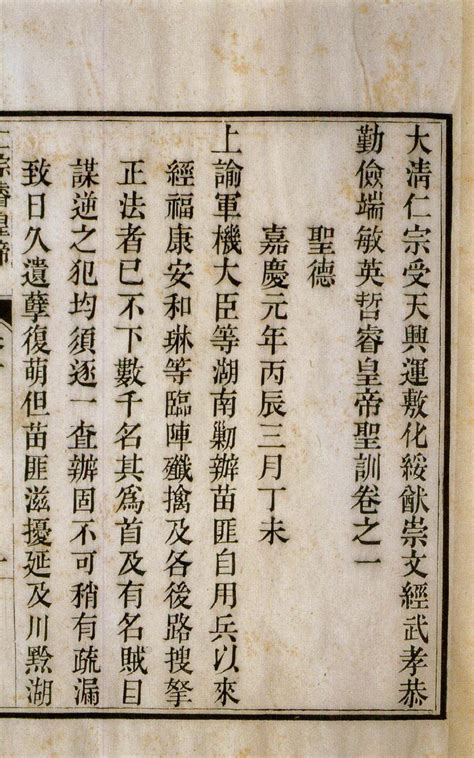 大淸仁宗受天興運敷化綏猷崇文經武孝恭
勤儉端敏英哲睿皇帝聖訓卷之一
聖德
嘉慶元年丙辰三月丁未
上諭軍機大臣等湖南勦辦苗匪自用兵以來
經福康安和琳等臨陣殲擒及各後路搜拏
正法者已不下數千名其爲首及有名賊目
謀逆之犯均須逐一查辦固不可稍有疏漏
致日久遺孽復萌但苗匪滋擾延及川黔湖
仁宗睿皇帝